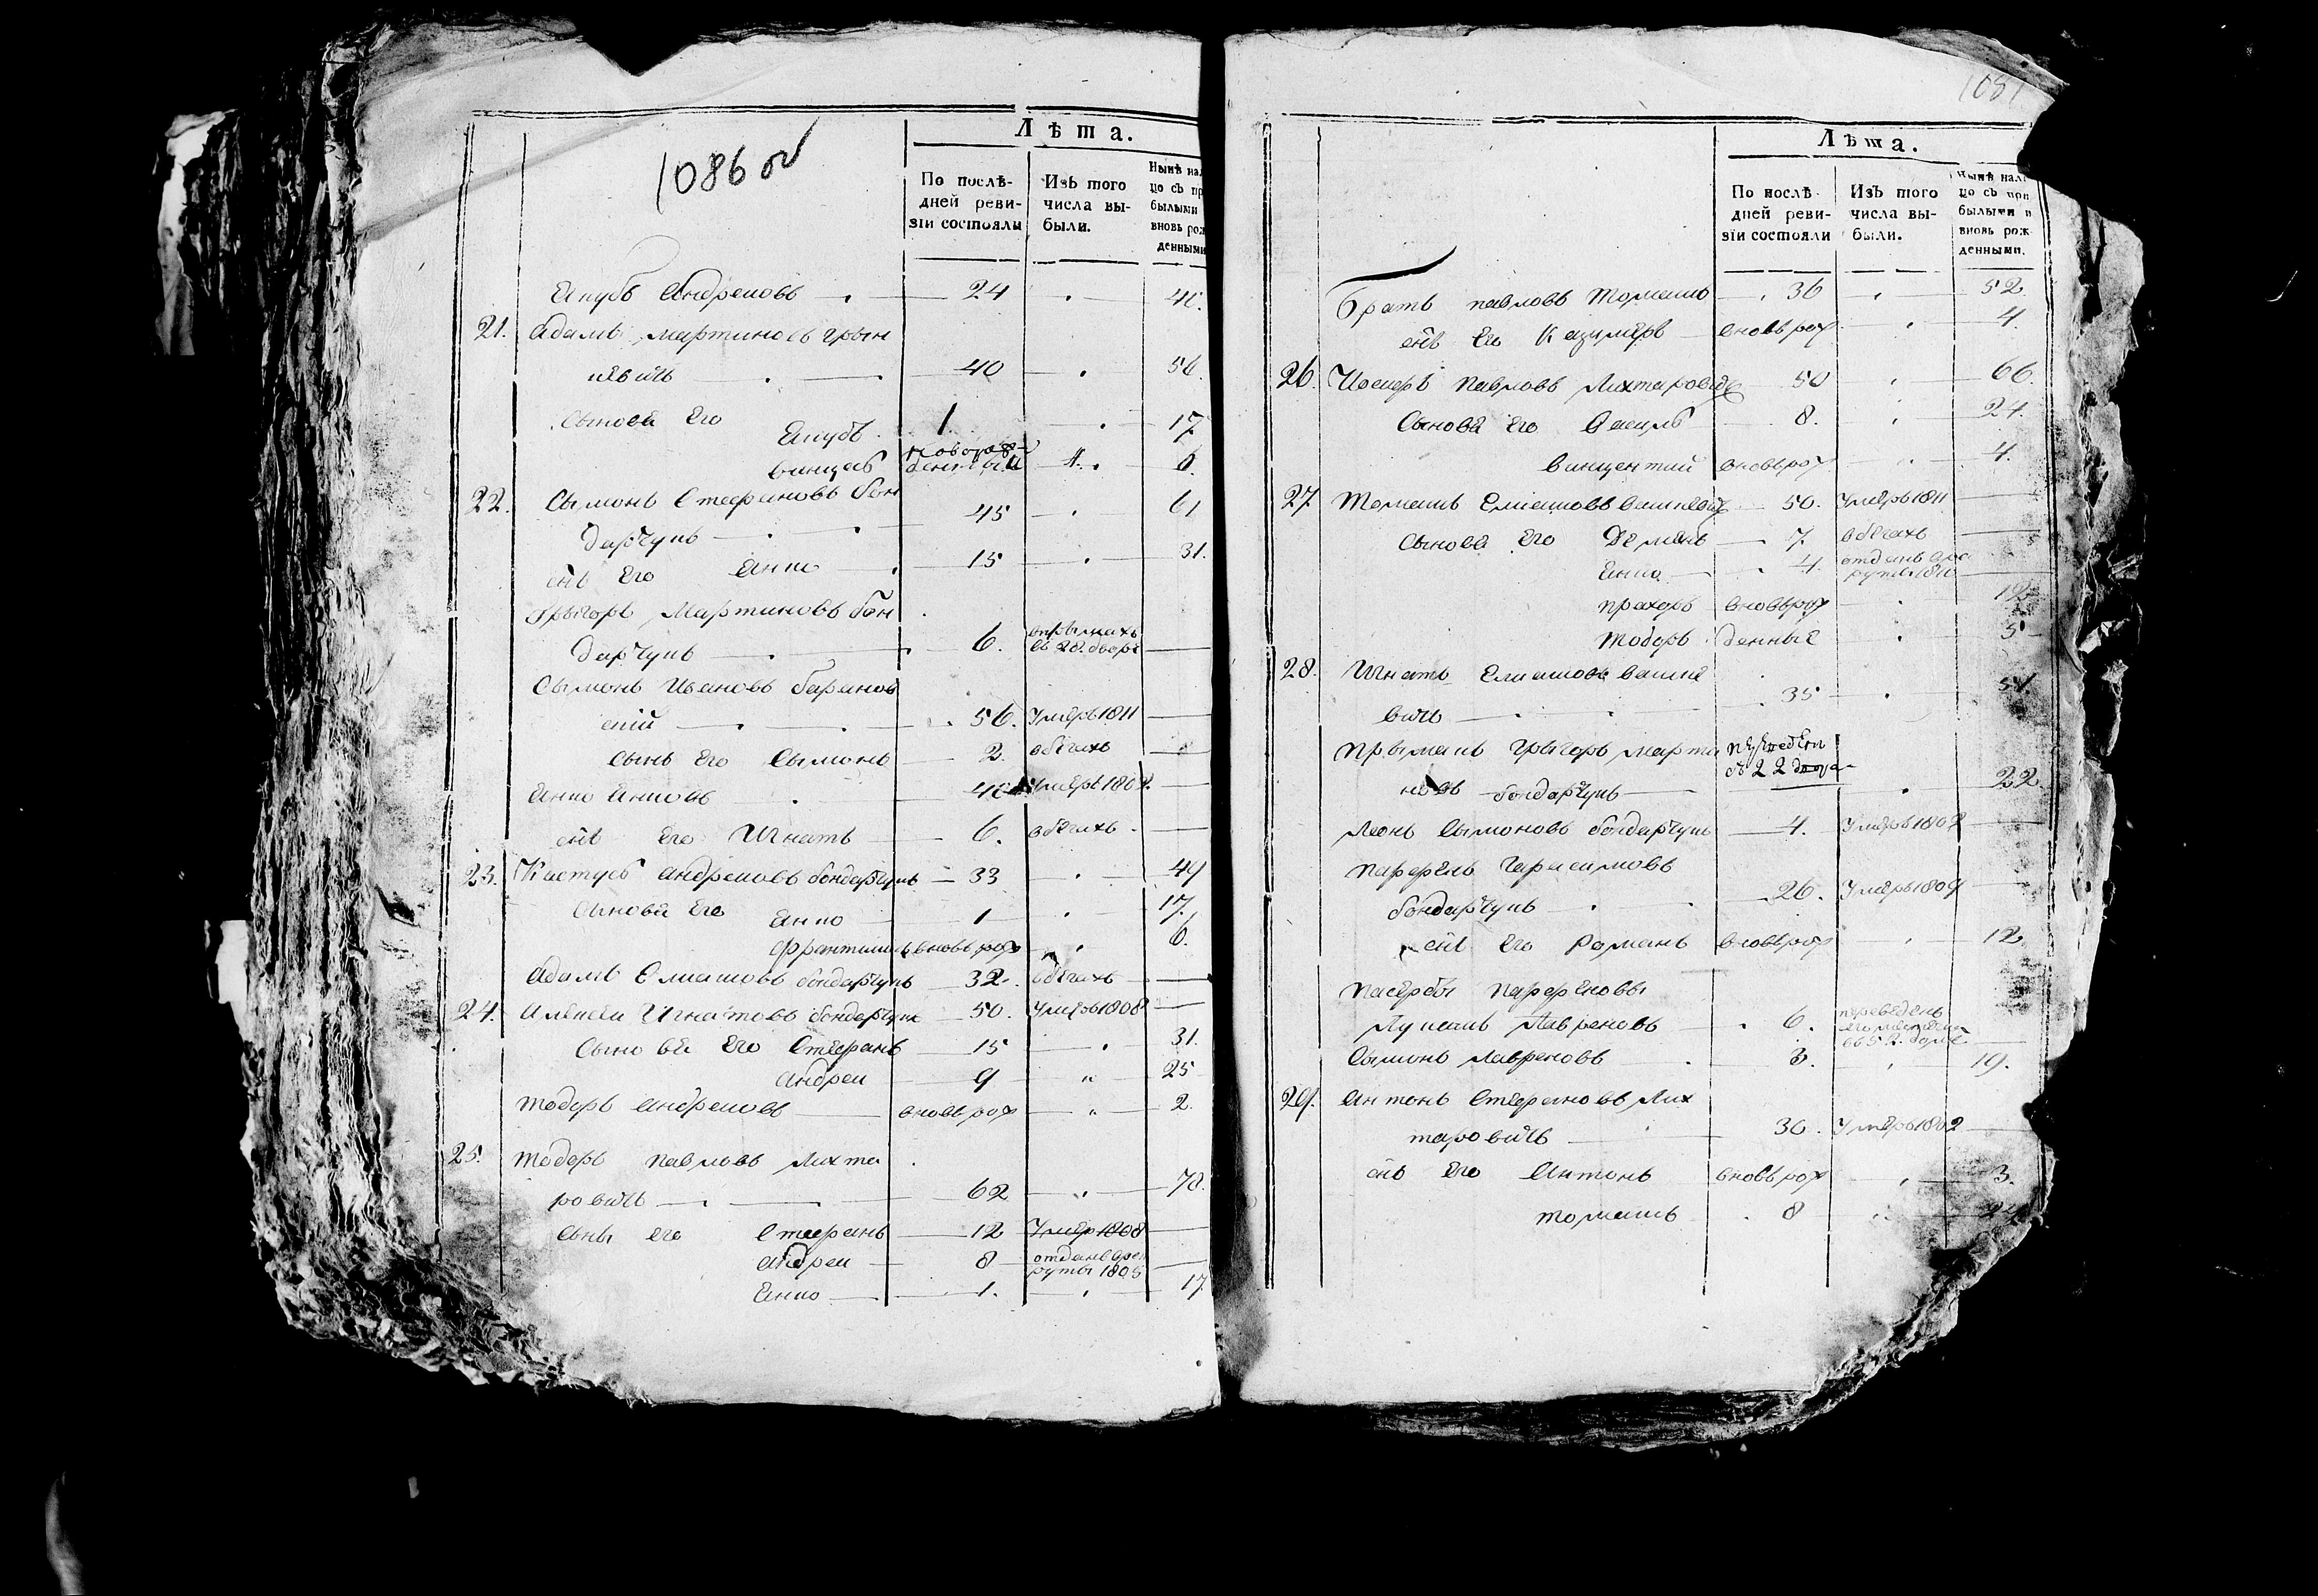 1086 об
Лѣта.
По послѣ-
дней реви-
зіи состояли
Изъ того
числа вы-
были.
Нынѣ на
цо съ пр
былыми
вновь рож
денными
Якубъ Андреювъ 24
21. Адамъ Мартиновъ Грын
кѣвичъ 40 56
Сыновя Его Якубъ 1 17
винцесь новорож-
денный 6
22. Сымонъ Стефановъ бон
дарчукъ 45 61
снъ Его Янко 15 31.
Грыгоръ Мартиновъ бон
дарчукъ 6. впрымахъ
въ 28. дворѣ
Сымонъ Ивановъ баранов
скій 56. Умеръ 1811
Сынъ Его Сымонъ 2 вбегахъ
Янко Янковъ Умеръ
снъ Его Игнатъ 6. вбегахъ
23. Кастусь Андреювъ бондарчукъ 33 49
Сыновя Его Янко 1 17.
Франтишекъ вновь рож 6.
Адамъ Елиашовъ бондарчукъ 32 вбегахъ
24. Алексѣй Игнатовъ бондарчукъ 50. Умеръ 1808
Сыновя Его Стефанъ 15 31.
Андреи 9 25
Тодоръ Андреювъ вновь рож 2.
25. Тодоръ Павловъ Лихта
ровичъ 62 78.
Сыны его Стефанъ 12 Умер 1808
Андреи 8 отданъ врек
руты 1805
Янко 1. 17
108
Лѣта.
По послѣ-
дней реви-
зіи состояли
Изъ того
числа вы-
были.
Нынѣ нал
цо съ при
былыми и
вновь рож
денными.
Братъ павловъ Томашъ 36 52
снъ Его Казимеръ вновь рож 4.
26. Иосифъ Павловъ Лихтаровичъ 50 66.
Сыновя Его Василь 8. 24.
винцентий вновь рож 4.
27. Томашъ Елиашовъ вашкевичъ 50. Умеръ 1811
Сыновя Его Демянъ 7 вбегахъ
Янко 4. отданъ врек
руты 1811
прахоръ вновь рож 12
Тодоръ денные 5
28. Игнатъ Елиашовъ вашке
вичъ 35 51.
Прымакъ Грыгоръ Марти
новъ бондарчукъ переведен
съ 22 двора 22
Леонъ Сымоновъ бондарчукъ 4. Умеръ 1807
Парфенъ Герасимовъ
бондарчукъ 26. Умеръ 1809
снъ Его Романъ вновь рож 12
Пасербы Парфеновы
Лукашъ Лавреновъ 6. переведенъ
въ 52. домъ
Сымонъ Лавреновъ 3. 19.
29. Антонъ Стефановъ Лих
таровичъ 30. Умеръ 1802
снъ Его Антонъ вновь рож 3.
Томашъ 8 24